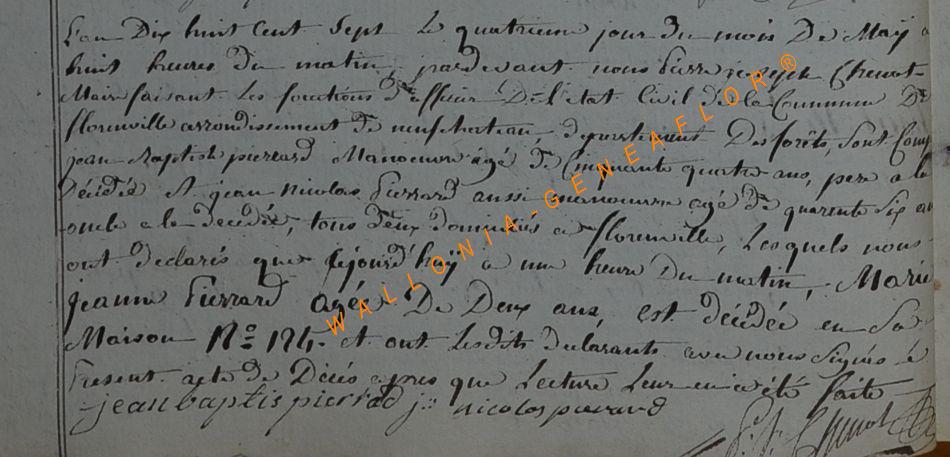 L'an Dix huit Cent Sept Le quatrieme jour du mois De Maÿ a
huit heures du matin, pardevant nous Pierre joseph Chenot
Maire faisant Les fonctions d'officier De L'etat Civil de la Commune De
florenville arrondissement de neufchateau, departement Des forêts, Sont Comp
jean Baptiste pierrard Manoeuvre âgé de Cinquante quatre ans, pere a la
Décédée et jean nicolas Pierrard aussi manoeuvre agé de quarente Six an
oncle a la décedée, tous deux domiciliés a florenville, Lesquels nous
ont declarés que Cejourd'huÿ a une heure du matin, Marie
jeanne Pierrard agée De Deux ans, est décédée en Sa
Maison N.o 184. et ont Lesdits declarants avec nous Signés le
Present acte de Décès apres que Lecture Leur en a été faite
jean baptis pierrad j: nicolas pierrard
P. J. Chenot
WALLONIA-GENEAFLOR®